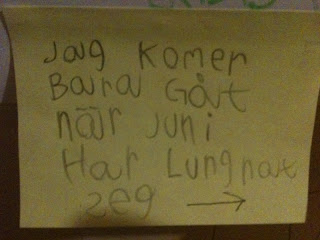 Jag Komer
Bara Gåt
när Juni
Har Lungnat
seg →